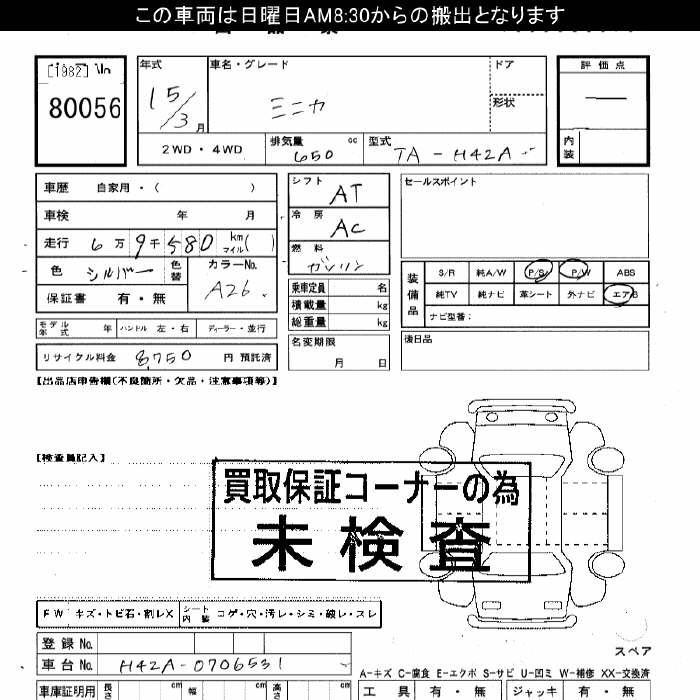 この車両は日曜日AM8:30からの搬出となります
[1982] \ln
80056
年式
15/3 月
車名・グレード
ミニカ
ドア
形状
評価点
内装
2WD・4WD
排気量 650 cc
型式 TA-H42A
車歴 自家用・( )
車検 年 月
走行 6万9千580 km マイル( )
色 シルバー 色替
カラーNo. A26
保証書 有・無
モデル年式 年 ハンドル 左・右 ディーラー・並行
リサイクル料金 8,750 円 預託済
シフト AT
冷房 AC
燃料 ガソリン
乗車定員 名
積載量 kg
総重量 kg
名変期限
月 日
セールスポイント
装備品
S/R 純A/W P/S P/W ABS
純TV 純ナビ 革シート 外ナビ エアB
ナビ型番:
後日品
【出品店申告欄(不良箇所・欠品・注意事項等)】
【検査員記入】
買取保証コーナーの為
未検査
FW キズ・トビ石・割レX シート内装 コゲ・穴・汚レ・シミ・破レ・スレ
登録No.
車台No. H42A-0706531
スペア
A-キズ C-腐食 E-エクボ S-サビ U-凹ミ W-補修 XX-交換済
車庫証明用 長さ cm 幅 cm 高さ cm
工具 有・無 ジャッキ 有・無